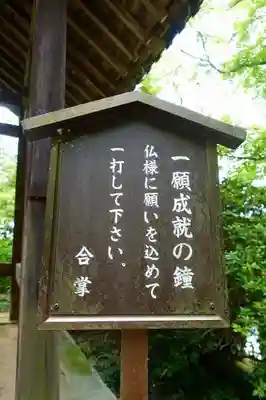 一願成就の鐘
仏様に願いを込めて
一打して下さい。
合掌